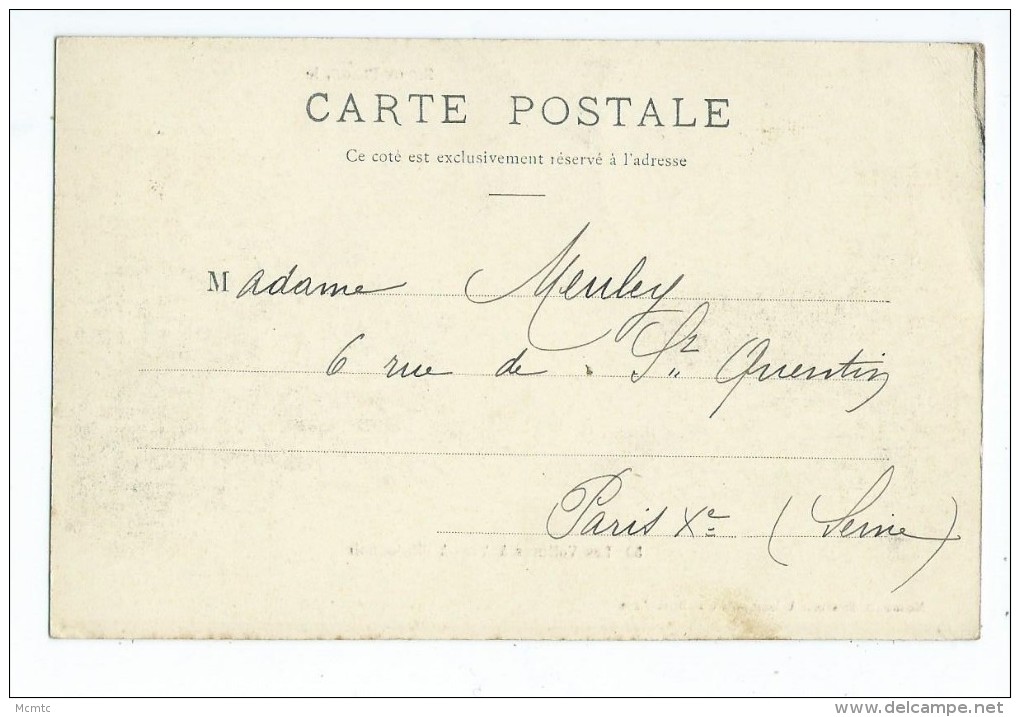 CARTE POSTALE
Ce coté est exclusivement réservé à l'adresse
Madame Meuley
6 rue de St Quentin
Paris Xe (Seine)
Mcmtc
delcampe.net